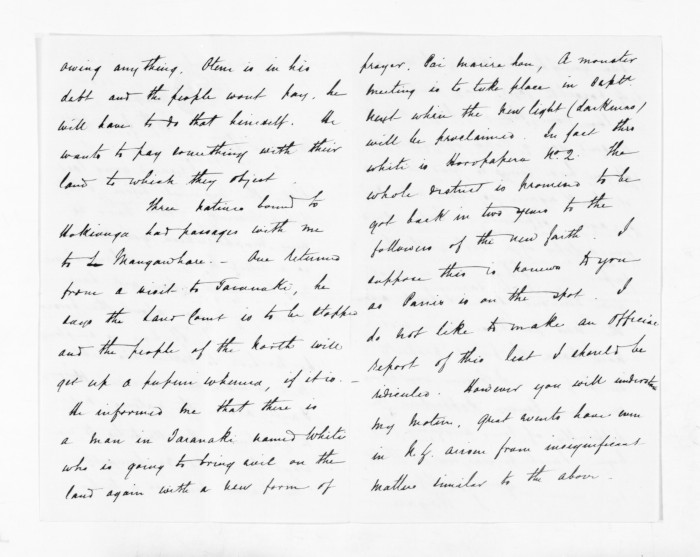 owing anything. Otene is in his
debt and the people wont pay, he
will have to do that himself. He
wants to pay something with their
land to which they object.
Three natives bound to
Hokianga had passages with me
to Mangawhare. - One returned
from a visit to Taranaki, he
says the Land Court is to be stopped
and the people of the North will
get up a pupuri whenua, if it is. -
He informed me that there is
a man in Taranaki named White
who is going to bring evil on the
land again with a new form of
prayer, Pai marire hou, A monster
meeting is to take place in Septr.
next where the new light (darkness)
will be proclaimed. In fact this
white is Horopapera No. 2. The
whole district is promised to be
got back in two years to the
followers of the new faith. I
suppose this is to you
as Parris is on the spot. I
do not like to make an Official
report of this lest I should be
ridiculed. However you will understan
my motive, great events have even
in N.Z. arisen from insignificant
matters similar to the above.